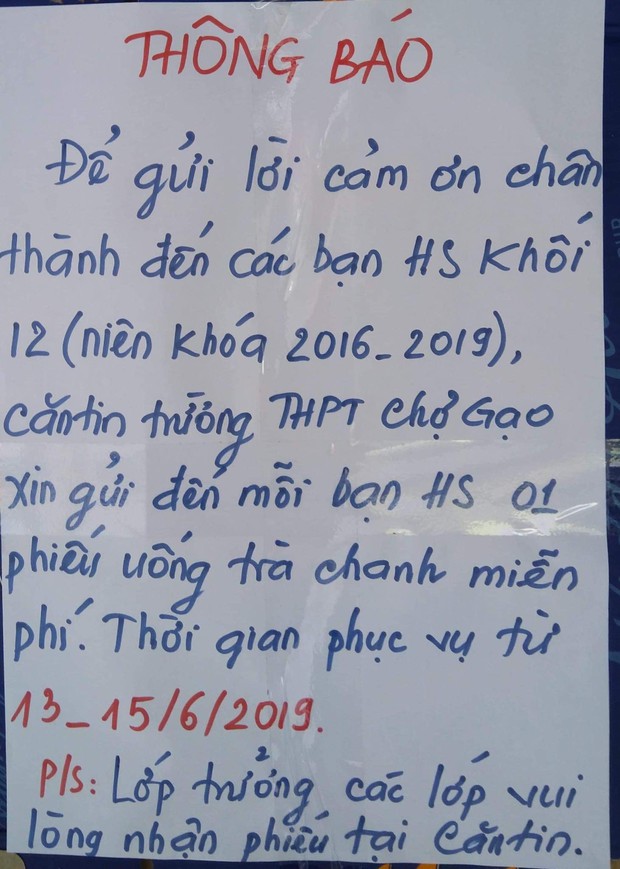 THÔNG BÁO
Để gửi lời cảm ơn chân
thành đến các bạn HS Khối
12 (niên khóa 2016-2019),
căntin trường THPT Chợ Gạo
xin gửi đến mỗi bạn HS 01
phiếu uống trà chanh miễn
phí. Thời gian phục vụ từ
13-15/6/2019.
P/s: Lớp trưởng các lớp vui
lòng nhận phiếu tại Căntin.